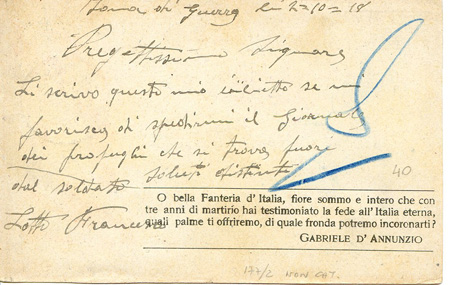 Zona di Guerra li 2-10-18
Pregattissimo Signore
Li scrivo questo mio biglietto se mi
favorisca di spedirmi il Giornale
dei profughi che si trova fuore
saluti distinti
dal soldato
Lotto Francesco
40
O bella Fanteria d'Italia, fiore sommo e intero che con
tre anni di martirio hai testimoniato la fede all'Italia eterna,
quali palme ti offriremo, di quale fronda potremo incoronarti?
GABRIELE D'ANNUNZIO
177/2 NON CAT.